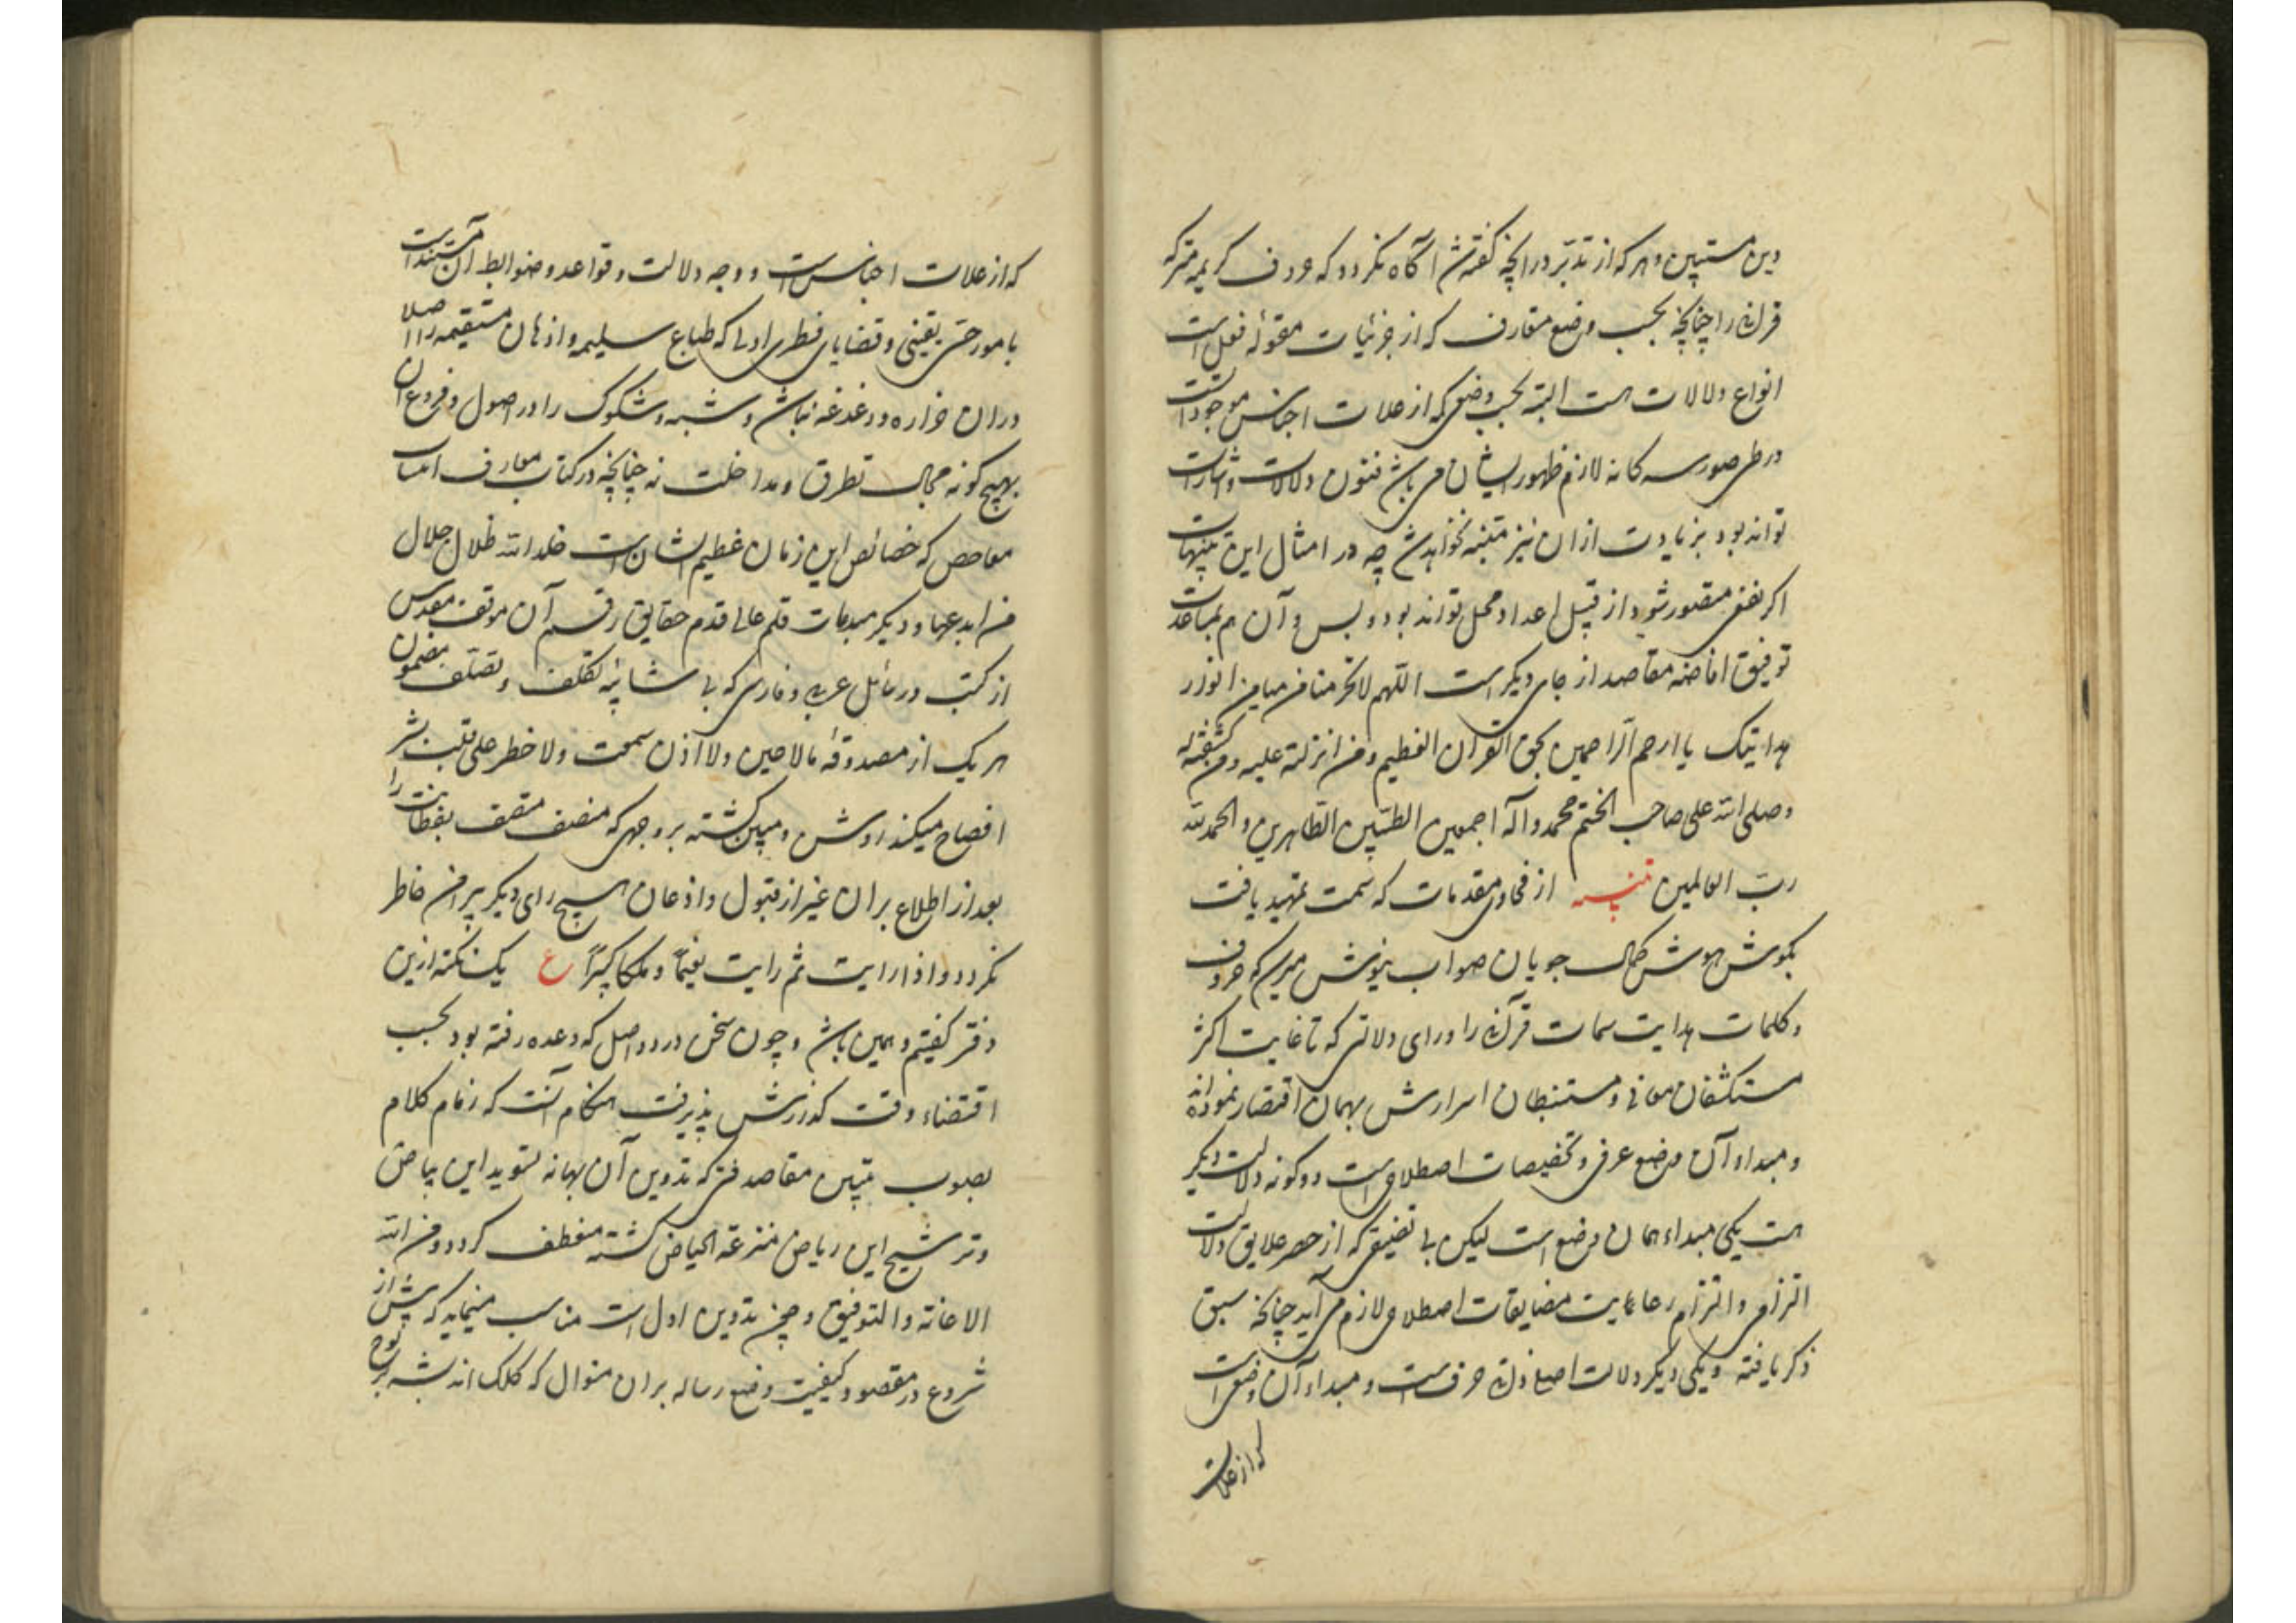 دین مستبین و هر که از تدبر در آنچه گفته شد آگاه نگردد که حروف کریمه متبرکه
قرآنی را چنانچه بحسب وضع متعارف که از جزئیات مقوله فعل است
انواع دلالات هست البته بحسب وضعی که از علامات اجناس موجودات است
در طی صور سه گانه لازم ظهور ایشان می باشد فنون دلالات و اشارات
تواند بود بزیادت از آن نیز متنبه نخواهد شد چه در امثال این تنبیهات
اگر نفعی متصور شود از قبیل اعداد محل تواند بود و بس و آن هم بمساعدت
توفیق افاضه مقاصد از جای دیگر است اللهم لا تحرمنا من میامن انوار
هدایتک یا ارحم الراحمین بحق القرآن العظیم و من انزلته علیه و من کشفته له
وصلی الله علی صاحب الختم محمد وآله اجمعین الطیبین الطاهرین والحمد لله
رب العالمین تنبیه از فحاوی مقدمات که سمت تمهید یافت
بگوش هوش کمال جویان صواب نیوش میرسد که حروف
و کلمات هدایت سمات قرآنی را ورای دلالتی که تا غایت اکثر
مستکشفان معانی و مستنبطان اسرارش بهمان اقتصار نموده اند
و مبداء آن وضع عرفی و تخصیصات اصطلاحی است دو گونه دلالت دیگر
هست یکی مبداء همان وضع است لیکن بی تضییقی که از حصر علایق دلالت
التزامی و التزام رعایت مضایقات اصطلاحی لازم می آید چنانچه سبق
ذکر یافته و یکی دیگر دلالت اصلی ذاتی حرف است و مبداء آن وضعی است
که از علامات
که از علامات اجناس است و وجه دلالت و قواعد و ضوابط آن مستند است
بامور حسی یقینی و قضایای فطری اولی که طباع سلیمه و اذهان مستقیمه را اصلا
در آن خزازه و دغدغه نباشد و شبه و شکوک را در اصول و فروع آن
بهیچ گونه مجال تطرق و مداخلت نه چنانچه در کتاب معارف
مفاحص که خصائص این زمان عظیم الشان است خلد الله ظلال جلال
من ابدعها و دیگر مبدعات قلم عالی قدم حقایق رقم آن موقف مقدس
از کتب و رسائل عربی و فارسی که بی شائبه تکلف و تصلف مضمون
هر یک از مصدوقه ما لا عین ولا اذن سمعت ولا خطر علی قلب بشر
افصاح میکند روشن و مبین گشته بر وجهی که منصف متصف بفطانت را
بعد از اطلاع بر آن غیر از قبول و اذعان هیچ رای دیگر پیرامن خاطر
نگردد و اذا رایت ثم رایت نعیما و ملکا کبیرا ع یک نکته ازین
دفتر گفتیم و همین باشد و چون سخن در دو اصل که وعده رفته بود بحسب
اقتضاء وقت گذارش پذیرفت هنگام آنست که زمام کلام
بصوب تبیین مقاصد فنی که تدوین آن بهانه تسوید این بیاض
و ترشیح این ریاض منزعة الحیاض گشته منعطف گردد و من الله
الاعانة و التوفیق و چون تدوین اول است مناسب مینماید که پیش از
شروع در مقصود کیفیت وضع رساله بر آن منوال که کلک اندیشه بر لوح